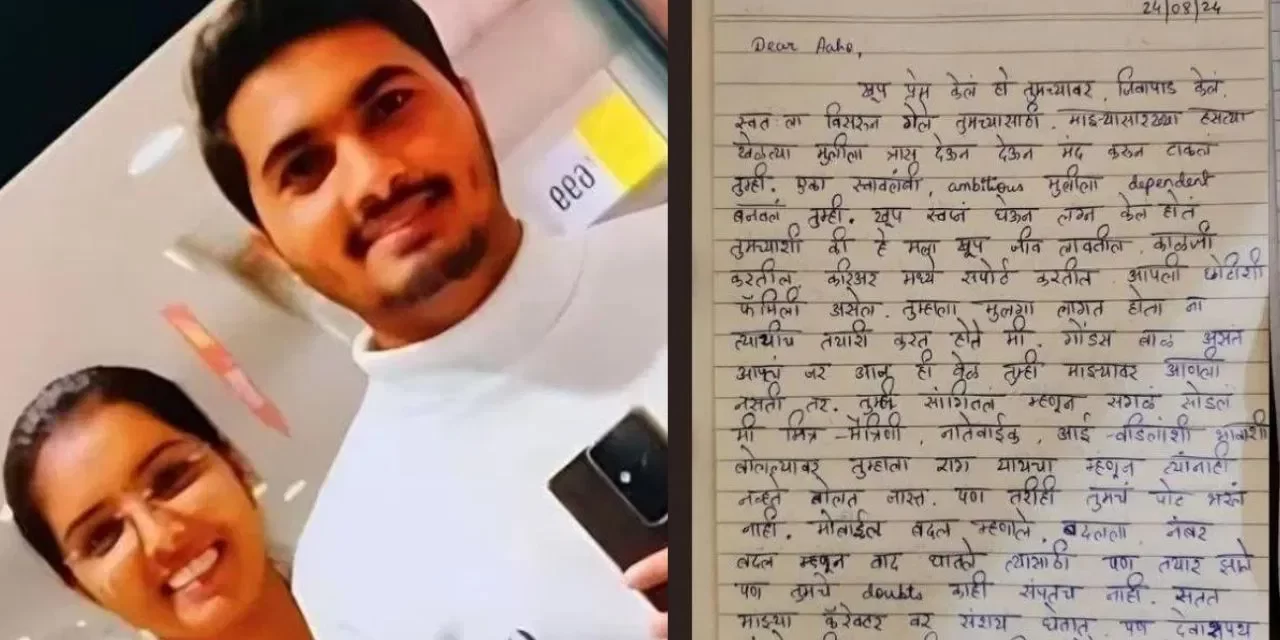 24/08/24
Dear Aaho,
खूप प्रेम केलं हो तुमच्यावर, जिवापाड केलं.
स्वतःला विसरून गेले तुमच्यासाठी. माझ्यासारख्या हसत्या
खेळत्या मुलीला त्रास देऊन देऊन मंद करुन टाकलं
तुम्ही. एका स्वावलंबी, ambitious मुलीला dependent
बनवलं तुम्ही. खूप स्वप्नं घेऊन लग्न केलं होतं
तुमच्याशी की हे मला खूप जीव लावतील, काळजी
करतील, करिअर मध्ये सपोर्ट करतील. आपली छोटीशी
फॅमिली असेल. तुम्हाला मुलगा लागत होता ना
त्याचीच तयारी करत होते मी. गोंडस बाळ असतं
आपलं जर आज ही वेळ तुम्ही माझ्यावर आणली
नसती तर. तुम्ही सांगितलं म्हणून सगळं सोडलं
मी मित्र-मैत्रिणी, नातेवाईक, आई-वडिलांशी भावाशी
बोलल्यावर तुम्हाला राग यायचा म्हणून त्यांनाही
नव्हते बोलत जास्त. पण तरीही तुमचं पोट भरलं
नाही. मोबाईल बदल म्हणाले, बदलला. नंबर
बदल म्हणून वाद घातले त्यासाठी पण तयार झाले
पण तुमचे doubts काही संपतच नाही. सतत
माझ्या कॅरेक्टर वर संशय घेतात पण देवाशपथ